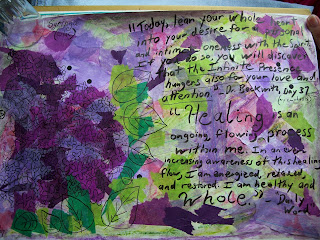 "Today, lean your whole heart
into your desire for a personal
and intimate oneness with the Spirit.
If you do so, you will discover
that the Infinite Presence
hungers also for your love and
attention." D. Beckwith, Day 37
"Healing is an
ongoing, flowing process
within me. In an ever-
increasing awareness of this healing
flow, I am energized, relaxed,
and restored. I am healthy and
whole." - Daily
Word